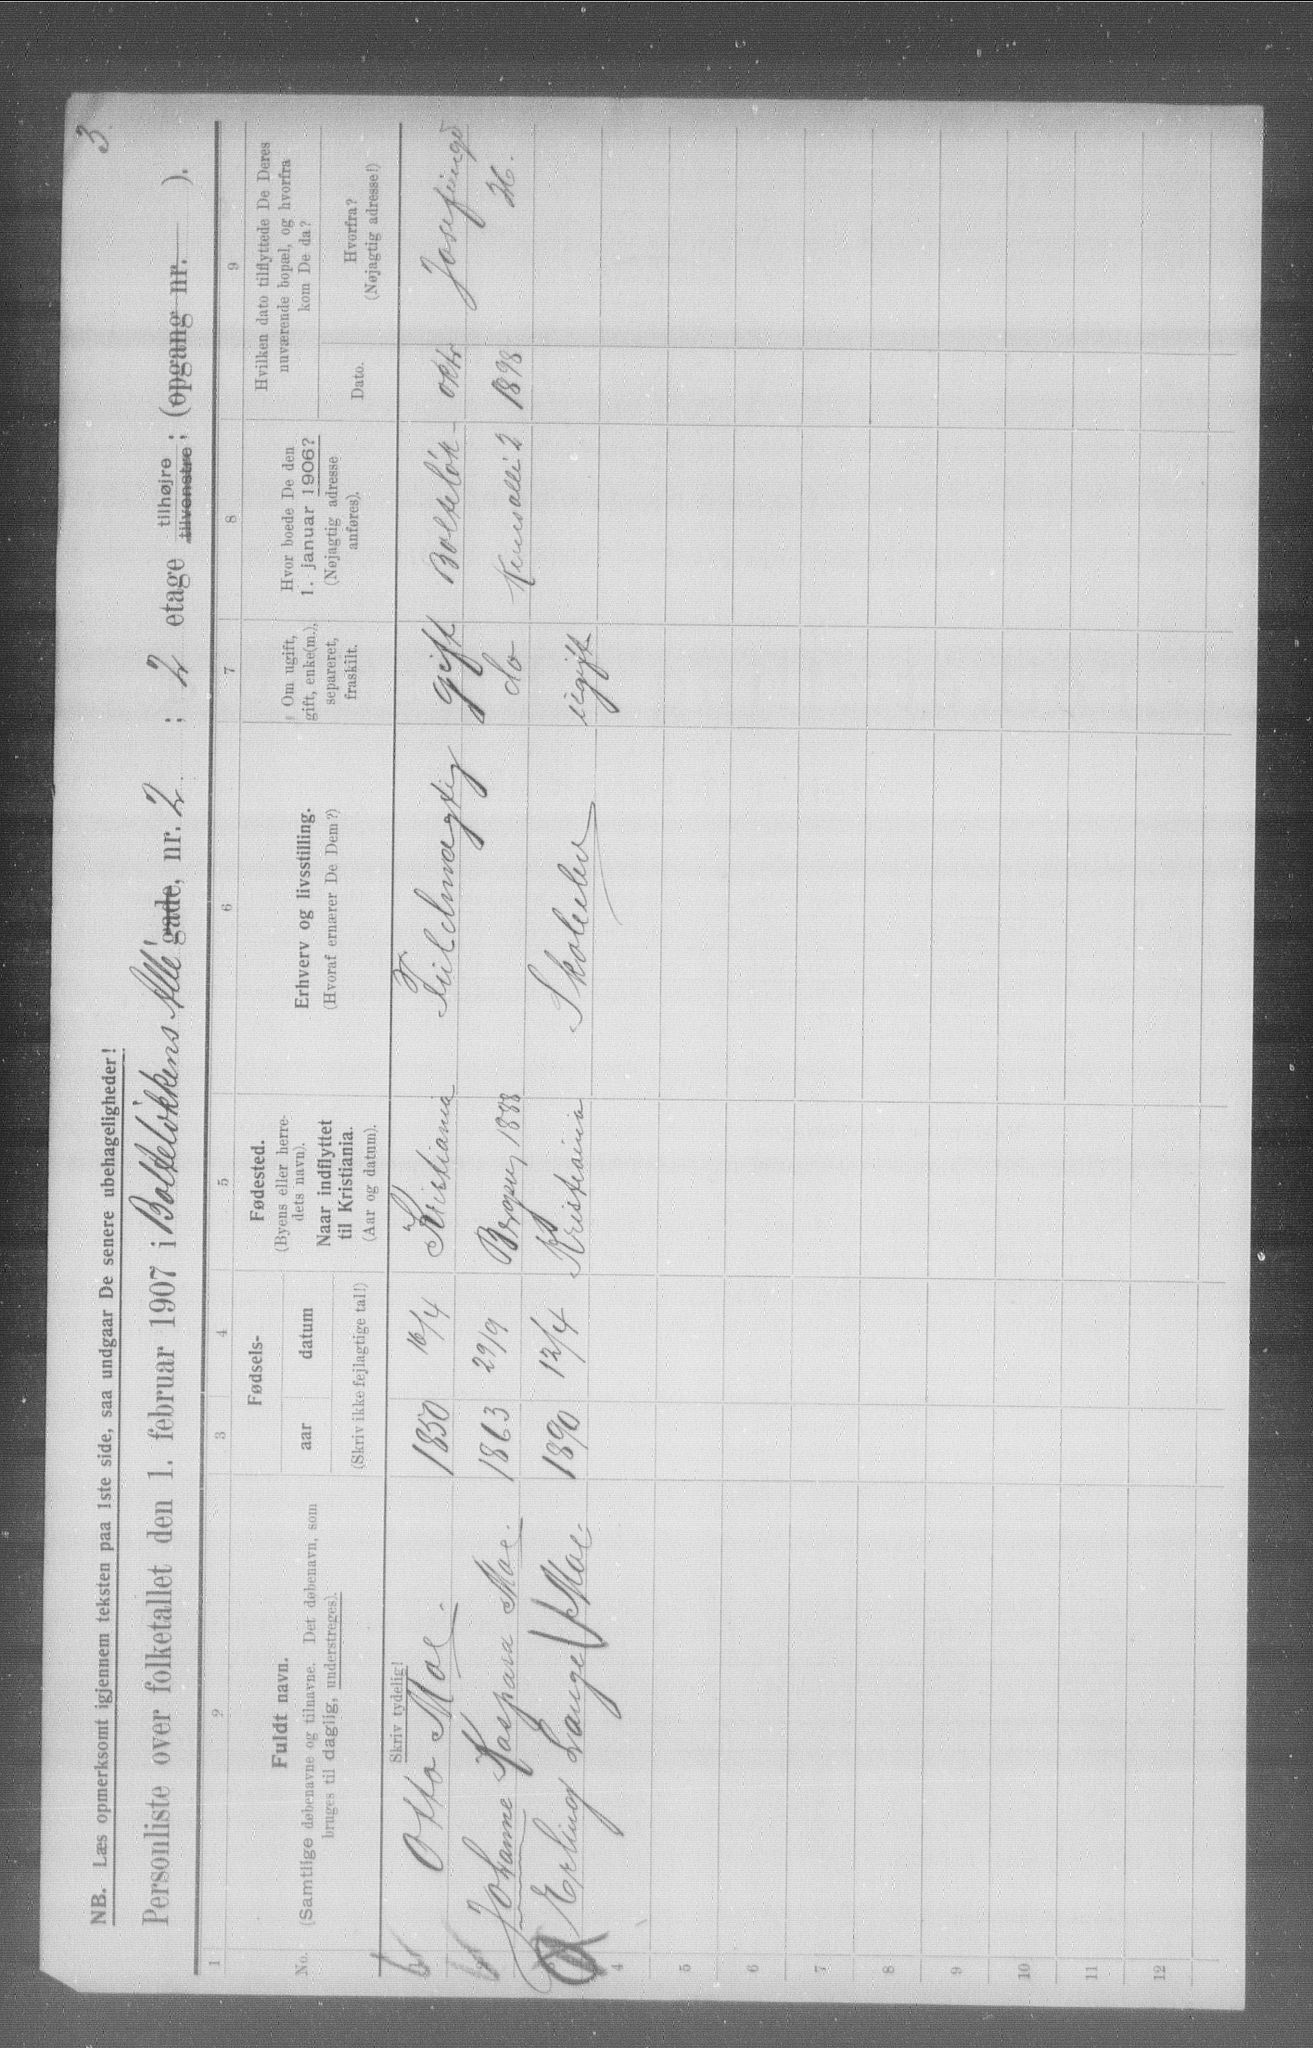 3
NB. Læs opmerksomt igjennem teksten paa 1ste side, saa undgaar De senere ubehageligheder!
Personliste over folketallet den 1. februar 1907 i Bolteløkkens Allé gade, nr. 2 ; 2 etage tilhøjre ; (opgang nr. ).
tilvenstre ;
1 2 3 4 5 6 7 8 9
No.
Fuldt navn.
(Samtlige døbenavne og tilnavne. Det døbenavn, som
bruges til daglig, understreges).
Fødsels-
aar datum
(Skriv ikke fejlagtige tal!)
Fødested.
(Byens eller herre-
dets navn).
Naar indflyttet
til Kristiania.
(Aar og datum).
Erhverv og livsstilling.
(Hvoraf ernærer De Dem?)
Om ugift,
gift, enke(m.),
separeret,
fraskilt.
Hvor boede De den
1. januar 1906?
(Nøjagtig adresse
anføres).
Hvilken dato tilflyttede De Deres
nuværende bopæl, og hvorfra
kom De da?
Dato.
Hvorfra?
(Nøjagtig adresse!)
Skriv tydelig!
Otto Moe. 1850 16/4 Kristiania Fuldmægtig gift Bolteløk- oktr Josefinegd
Johanne Kaspara Moe. 1863 29/9 1888 do 2 1898
3 Erling Lange Moe. 1890 12/4 Kristiania Skoleelev ugift
4
5
6
7
8
9
10
11
12